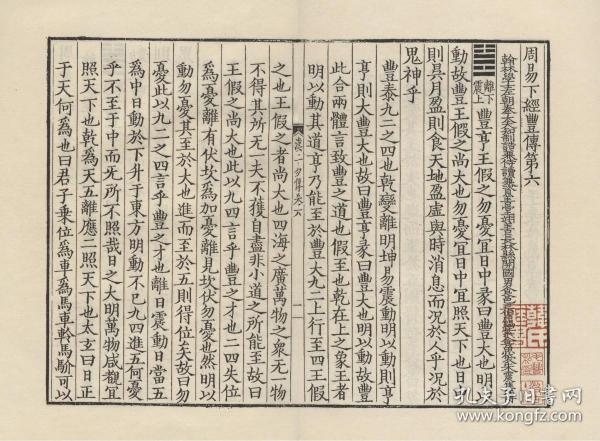 周易下經豐傳第六
翰林學士左朝奉大夫知制誥兼侍讀兼資善堂翊善長林縣開國男食邑
離下震上豐亨王假之勿憂宜日中彖曰豐大也明以
動故豐王假之尚大也勿憂宜日中宜照天下也日中
則昃月盈則食天地盈虛與時消息而況於人乎況於
鬼神乎
豐泰九二之四也乾變離明坤易震動明以動則亨
亨則大豐大也故曰豐亨彖曰豐大也明以動故豐
此合兩體言致豐之道也假至也乾在上之象王者
明以動其道亨乃能至於豐大九二上行至四王假
一
之也王假之者尚大也四海之廣萬物之衆无一物
不得其所无一夫不獲自盡非小道之所能至故曰
王假之尚大也此以九四言乎豐之才也二四失位
爲憂離有伏坎爲加憂離見坎伏勿憂也然明以
動勿憂其至於大也進而至於五則得位矣故曰勿
憂此以九二之四言乎豐之才也離日震動日當五
爲中日動於下升于東方明動不已九四進五何憂
乎不至于中而无所不照哉日之大明萬物咸覩宜
照天下也乾爲天五離應二照天下也太玄曰日正
于天何爲也曰君子乘位爲車爲馬車軨馬䯀可以
孔夫子旧书网
www.kongfz.com